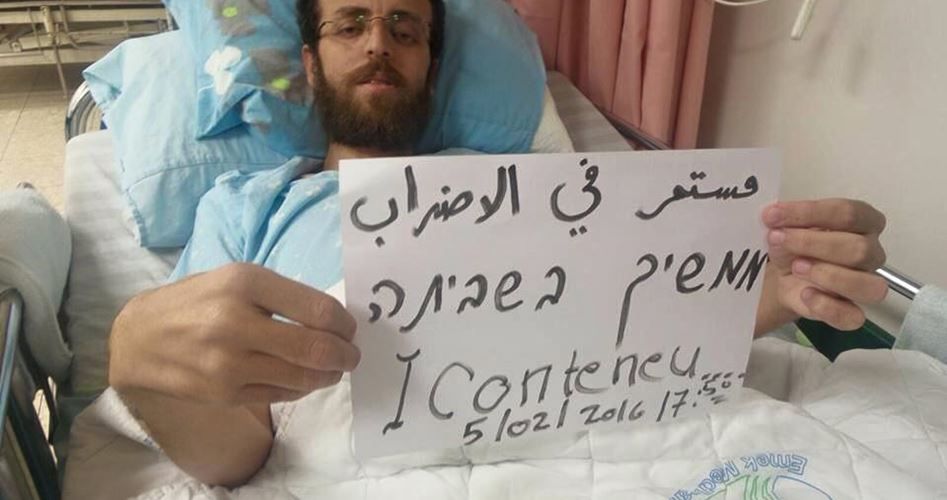 مستمر في الاضراب
ממשיך בשביתה
I Conteneu....
5/02/2016 17:50
Emek